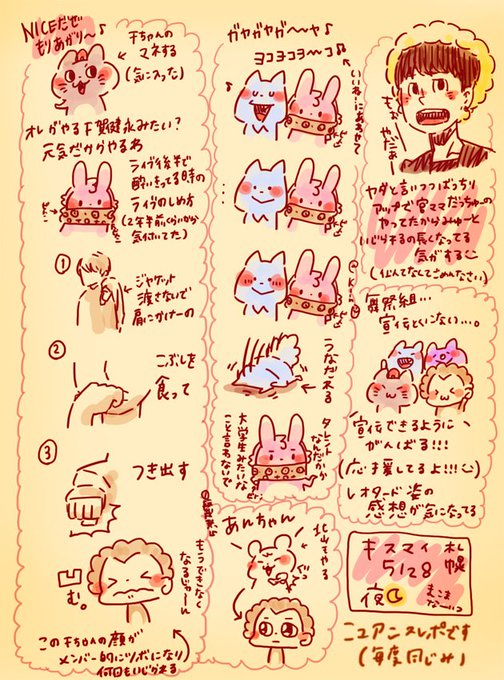 NICEだぜ
もりあがり〜♪
千ちゃんの
マネする
(気に入った)
オレがやる千賀健永みたい?
元気だからやるわ
ライヴ後半で
酔いまってる時の
ライヴのしめ方
(2年半前くらいから
気付いてた)
①
ジャケット
渡さないで
肩にかけーの
②
こぶしを
食って
③
つき出す
もうできなく
なるじゃーん
む。
この千ちゃんの顔が
メンバー的にツボになり
何回もいじられる
ガヤガヤガ〜ヤ♪
ヨコヨコヨ〜コ♪
いいね…にあわせて
うなだれる
タレント
なんだから
大学生みたいな
こと言わないで
あんちゃん
北山でやる
もぉ
やだぁー
ヤダと言いつつばっちり
アップで宮ママだっちゅーの
やってたからみゅーと
いじられるの長くなってる
気がする
(似んてなくてごめんなさい)
舞祭組…
宣伝とくにない…。
宣伝できるように
がんばる!!!
(応援してるよ!!!)
レオタード姿の
感想が気になってる
キスマイ
札幌
5/28
夜
ニュアンスレポです
(毎度同じみ)